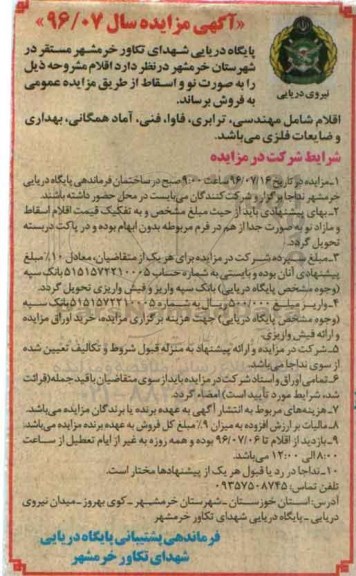 «آگهی مزایده سال ۹۶/۰۷»
نیروی دریایی
پایگاه دریایی شهدای تکاور خرمشهر مستقر در
شهرستان خرمشهر درنظر دارد اقلام مشروحه ذیل
را به صورت نو و اسقاط از طریق مزایده عمومی
به فروش برساند.
اقلام شامل مهندسی، ترابری، فاوا، فنی، آماد همگانی، بهداری
و ضایعات فلزی می‌باشد.
شرایط شرکت در مزایده
۱-مزایده در تاریخ ۹۶/۰۷/۱۶ ساعت ۹:۰۰ صبح در ساختمان فرماندهی پایگاه دریایی
خرمشهر نداجا برگزار و شرکت کنندگان می‌بایست در محل حضور داشته باشند.
۲-بهای پیشنهادی باید از حیث مبلغ مشخص و به تفکیک قیمت اقلام اسقاط
و مازاد نو به صورت جدا از هم در فرم مربوطه بدون ابهام بوده و در پاکت دربسته
تحویل گردد.
۳-مبلغ سپرده شرکت در مزایده برای هریک از متقاضیان، معادل ۱۰٪ مبلغ
پیشنهادی آنان بوده و بایستی به شماره حساب ۵۱۵۱۵۷۲۲۱۰۰۰۵ بانک سپه
(وجوه مشخص پایگاه دریایی) بانک سپه واریز و فیش واریزی تحویل گردد.
۴-واریز مبلغ ۵۰۰/۰۰۰ ریال به شماره ۵۱۵۱۵۷۲۲۱۰۰۰۵ بانک سپه
(وجوه مشخص پایگاه دریایی) جهت هزینه برگزاری مزایده، خرید اوراق مزایده
و ارائه فیش واریزی.
۵-شرکت در مزایده و ارائه پیشنهاد به منزله قبول شروط و تکالیف تعیین شده
از سوی نداجا می‌باشد.
۶-تمامی اوراق و اسناد شرکت در مزایده باید از سوی متقاضیان با قید جمله (قرائت
شد، شرایط مورد تأیید است) امضاء گردد.
۷-هزینه‌های مربوط به انتشار آگهی به عهده برنده یا برندگان مزایده می‌باشد.
۸-مالیات بر ارزش افزوده به میزان ۹٪ مبلغ کل فروش به عهده برنده مزایده می‌باشد.
۹-بازدید از اقلام تا ۹۶/۰۷/۰۶ بوده و همه روزه به غیر از ایام تعطیل از ساعت
۸:۰۰ الی ۱۲:۰۰ می‌باشد.
۱۰-نداجا در رد یا قبول هر یک از پیشنهادها مختار است.
تلفن تماس: ۰۹۳۵۷۵۰۸۷۴۵
آدرس: استان خوزستان-شهرستان خرمشهر-کوی بهروز-میدان نیروی
دریایی-پایگاه دریایی شهدای تکاور خرمشهر
فرماندهی پشتیبانی پایگاه دریایی
شهدای تکاور خرمشهر